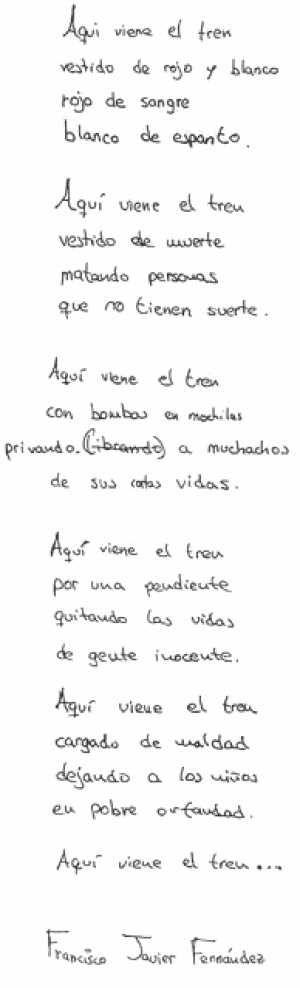 Aqui viene el tren
vestido de rojo y blanco
rojo de sangre
blanco de espanto.
Aquí viene el tren
vestido de muerte
matando personas
que no tienen suerte.
Aquí viene el tren
con bombas en mochilas
privando. (librando) a muchachos
de sus cortas vidas.
Aquí viene el tren
por una pendiente
quitando las vidas
de gente inocente.
Aquí viene el tren
cargado de maldad
dejando a los niños
en pobre orfandad.
Aquí viene el tren...
Francisco Javier Fernández